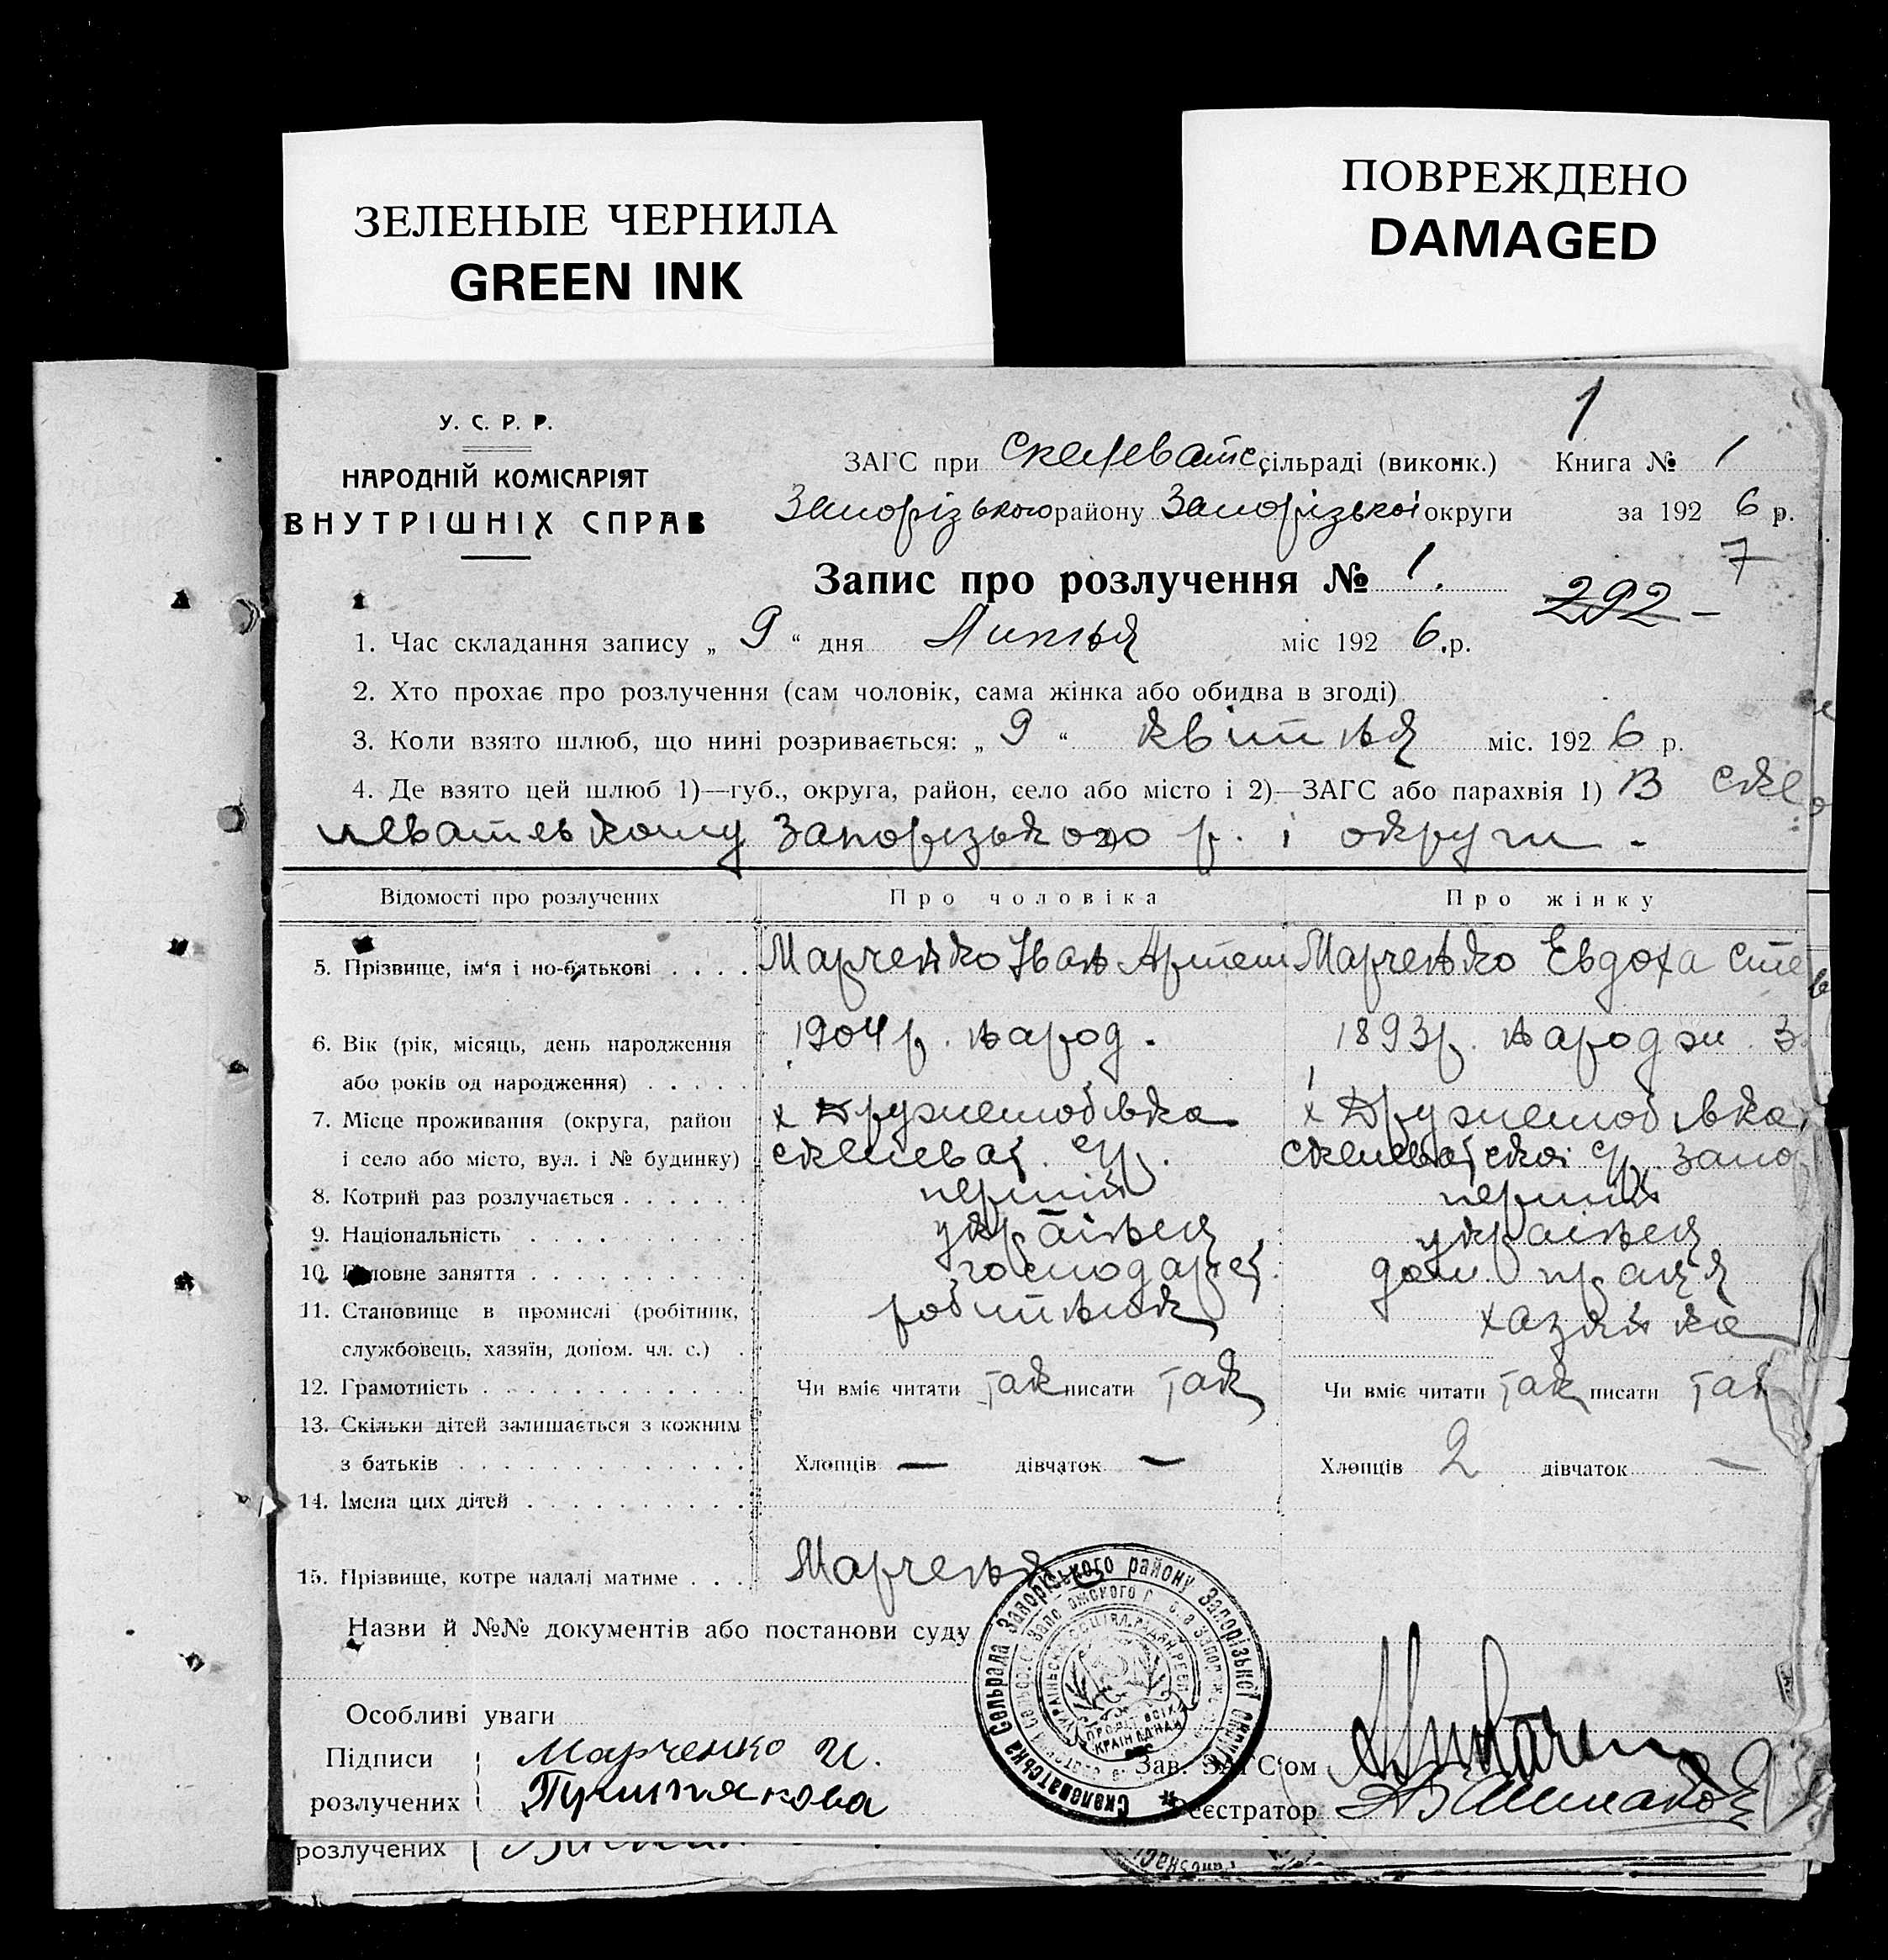 ЗЕЛЕНЫЕ ЧЕРНИЛА
GREEN INK
ПОВРЕЖДЕНО
DAMAGED
1
У. С. Р. Р.
НАРОДНІЙ КОМІСАРІЯТ
ВНУТРІШНІХ СПРАВ
ЗАГС при Скелеватс сільраді (виконк.) Книга № 1
Запорізького району Запорізької округи за 192 6 р.
7
Запис про розлучення № 1.
292 –
1. Час складання запису „ 9 “ дня Липня міс 192 6.р.
2. Хто прохає про розлучення (сам чоловік, сама жінка або обидва в згоді)
3. Коли взято шлюб, що нині розривається: „ 9 “ квітня міс. 192 6 р.
4. Де взято цей шлюб 1)—губ., округа, район, село або місто і 2)—ЗАГС або парахвія 1) В Ске
леватському Запорізького 2) р. і округи.
Відомості про розлучених Про чоловіка Про жінку
5. Прізвище, ім‘я і по-батькові . . . . Марченко Іван Артем Марченко Евдоха Сте
6. Вік (рік, місяць, день народження 1904 р. народ. 1893 р. народж. З.
або років од народження) . . . . .
7. Місце проживання (округа, район х Дружелюбівка х Дружелюбівка
і село або місто, вул. і № будинку) скелеват. с/р. скелеватської с/р. Запо
8. Котрий раз розлучається . . . . . . перший перший
9. Національність . . . . . . . . . українец українец
10. Головне заняття . . . . . . . . . . господарст. дом праця
11. Становище в промислі (робітник, робітник хазяйка
службовець, хазяїн, допом. чл. с.) .
12. Грамотність . . . . . . . . . . . . Чи вміє читати так писати так Чи вміє читати так писати так
13. Скільки дітей залишається з кожним
з батьків . . . . . . . . . . . . . Хлопців — дівчаток — Хлопців 2 дівчаток —
14. Імена цих дітей . . . . . . . . . .
15. Прізвище, котре надалі матиме . . . Марченко
Назви й №№ документів або постанови суду
Скелеватська Сельрада Запорізького району Запорізької округи
УКРАЇНСЬКА СОЦІЯЛ. РАДЯН. РЕСП.
ПРОЛЕТ. ВСІХ КРАЇН ЄДНАЙ
Особливі уваги
Підписи Марченко И.
розлучених
Зав. ЗАГС‘ом
Реєстратор
розлучених